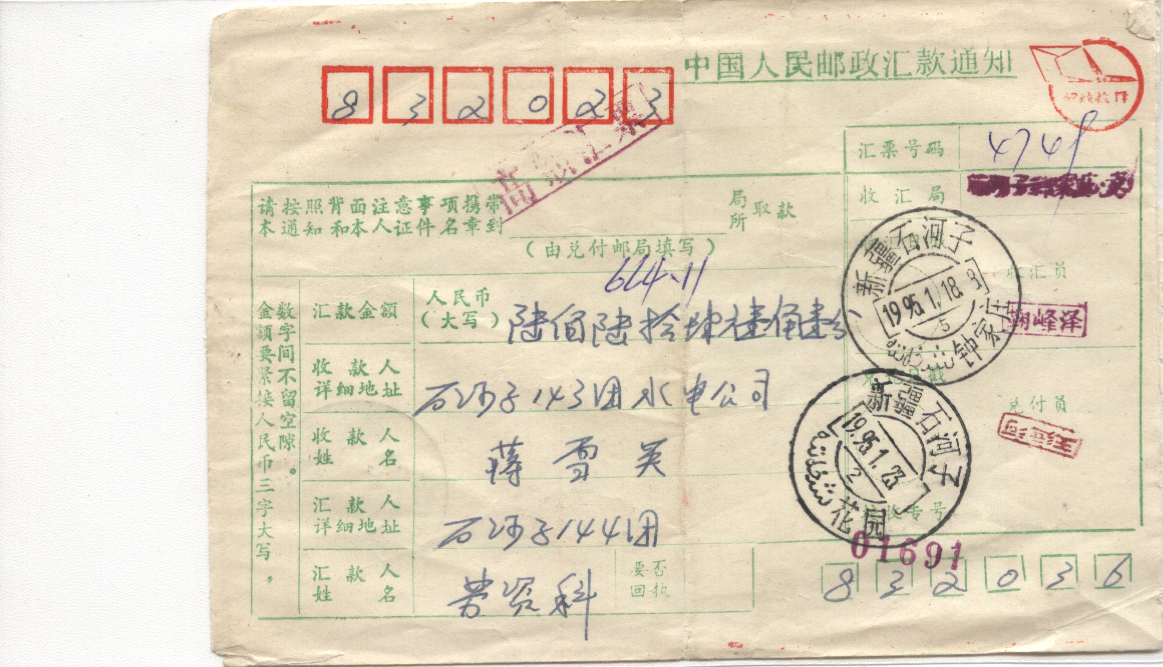 中国人民邮政汇款通知
832023
高额汇票
汇票号码 4748
收汇局
请按照背面注意事项携带
本通知和本人证件名章到
局所取款
(由兑付邮局填写)
664.11
汇款金额
人民币
(大写)
陆佰陆拾肆元壹角壹分
收款人
详细地址
石河子143团水电公司
收款人
姓名
蒋雪英
汇款人
详细地址
石河子144团
汇款人
姓名
劳资科
要否
回执
数字间不留空隙。
金额要紧接人民币三字大写,
收汇员
峰泽
兑付员
新疆石河子
1995.1.18
5
钟家庄
新疆石河子
1995.1.23
2
花园
专号
01691
832036